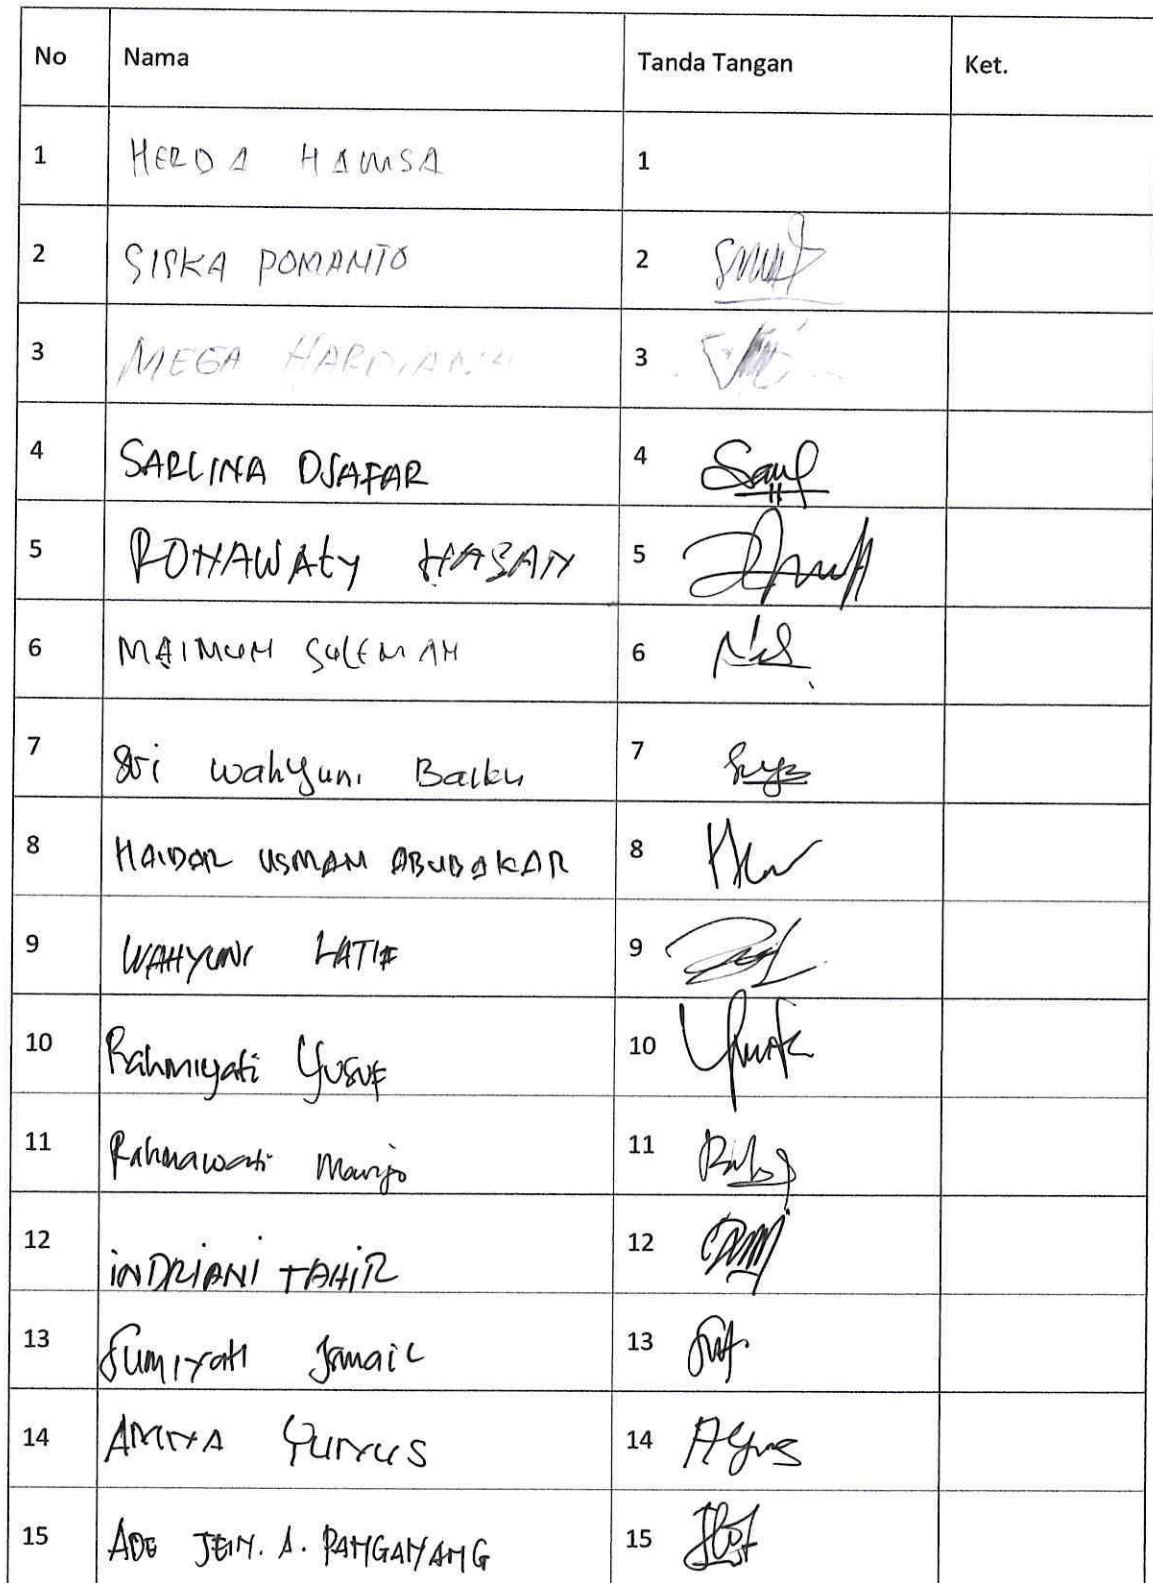 No Nama Tanda Tangan Ket.
1 HERDA HAMSA 1
2 SISKA POMANTO 2
3 MEGA HARDIANA 3
4 SARLINA DJAFAR 4
5 ROHAWATY HASAN 5
6 MAIMUN SULEMAN 6
7 Sri wahyuni Balku 7
8 HAIDAR USMAN ABUBAKAR 8
9 WAHYUNI LATIF 9
10 Rahmiyati Yusuf 10
11 Rahmawati Manjo 11
12 iNDRIANI TAHiR 12
13 Sumiyati Ismail 13
14 AMNA YUNUS 14
15 ADE JEIN. A. PANGANYANG 15